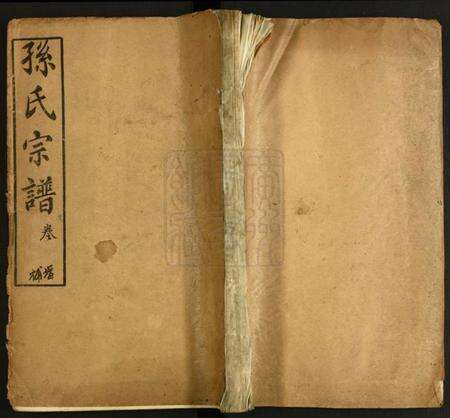 孫氏宗譜
卷